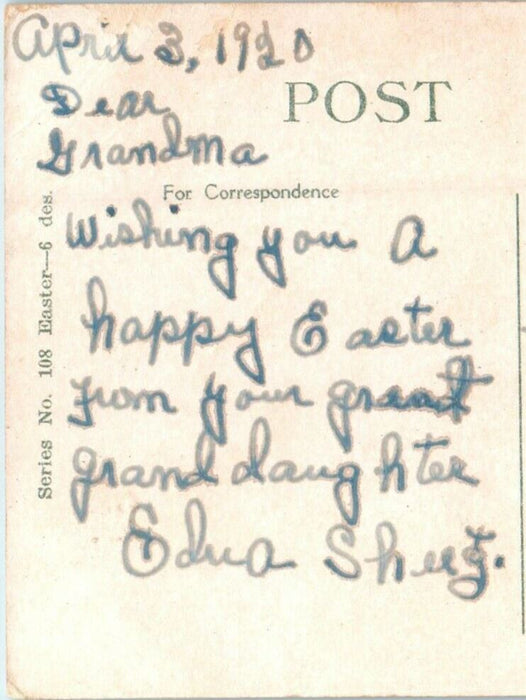 April 3, 1920
Dear
POST
Grandma
For Correspondence
Wishing you A
happy Easter
from your
grand daughter
Edna
Series No. 108 Easter—6 des.